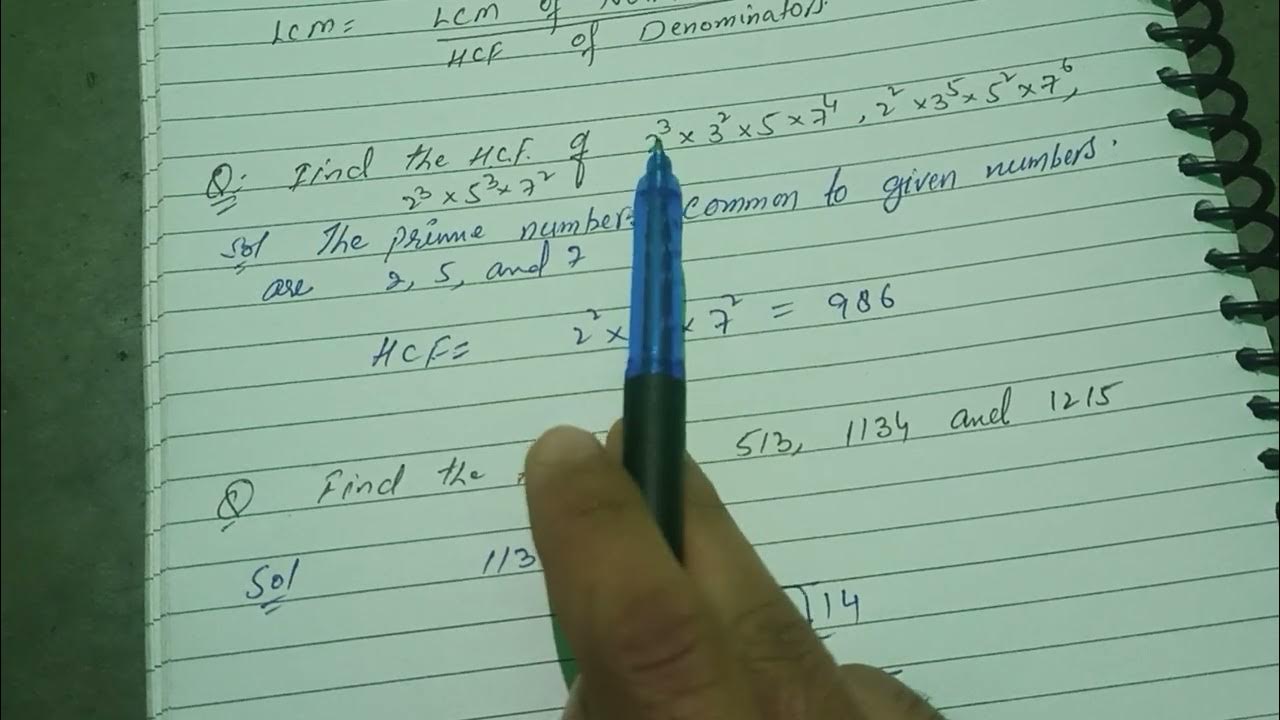 LCM = LCM of
HCF of Denominators
Q: Find the H.C.F. of 2³ × 3² × 5 × 7⁴, 2² × 3⁵ × 5² × 7⁶,
2³ × 5³ × 7²
Sol The prime numbers common to given numbers.
are 2, 5, and 7
HCF = 2² × × 7² = 986
Q Find the 513, 1134 and 1215
Sol 113
14